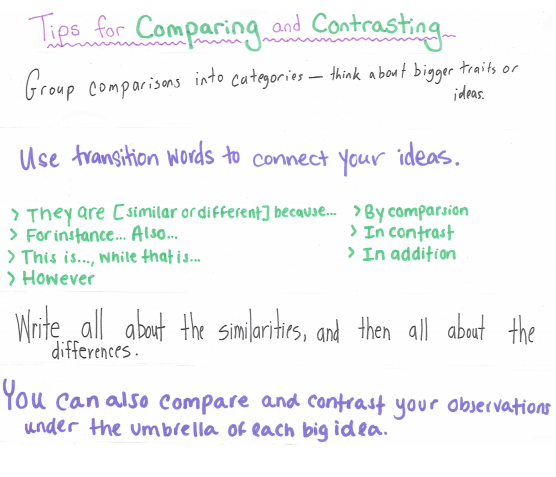 Tips for Comparing and Contrasting
Group comparisons into categories — think about bigger traits or
ideas.
Use transition words to connect your ideas.
> They are [similar or different] because...
> For instance... Also...
> This is..., while that is...
> However
> By comparsion
> In contrast
> In addition
Write all about the similarities, and then all about the
differences.
You can also compare and contrast your observations
under the umbrella of each big idea.